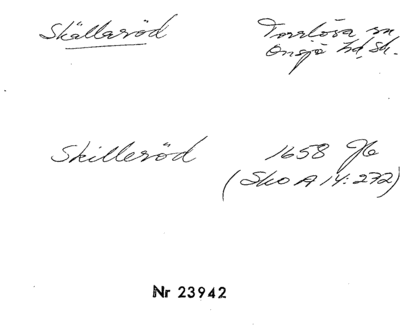 Skälleröd Torrlösa sn
Onsjö hd, Sk.
Skilleröd 1658 Jb
(Sko A 14:272)
Nr 23942